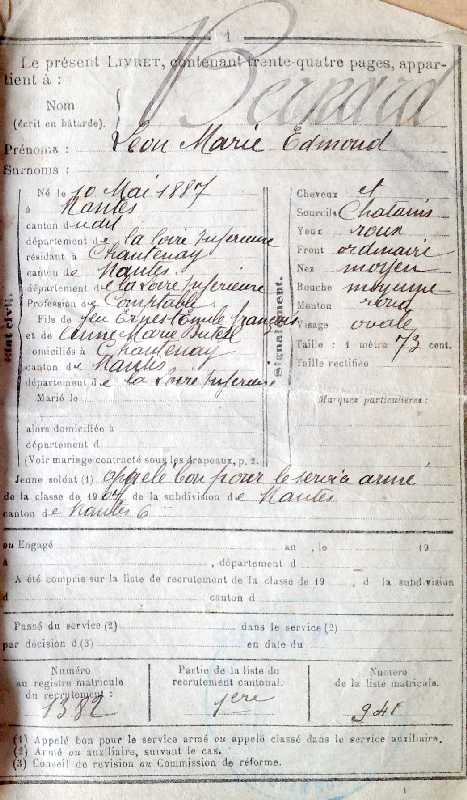 1
Le présent LIVRET, contenant trente-quatre pages, appar-
tient à :
Nom
(écrit en bâtarde).
Bernard
Prénoms : Léon Marie Edmond
Surnoms :
État civil.
Né le 10 Mai 1887
à Nantes
canton dudit
département de la Loire Inférieure
résidant à Chantenay
canton de Nantes
département de la Loire Inférieure
Profession de Comptable
Fils de feu Ernest Emile François
et de Anne Marie
domiciliés à Chantenay
canton de Nantes
département de la Loire Inférieure
Marié le
alors domiciliée à
département d
(Voir mariage contracté sous les drapeaux, p. 2.)
Signalement.
Cheveux et
Sourcils Chatains
Yeux roux
Front ordinaire
Nez moyen
Bouche moyenne
Menton rond
Visage ovale
Taille : 1 mètre 73 cent.
Taille rectifiée
Marques particulières :
Jeune soldat (1) appelé bon pour le service armé
de la classe de 1907, de la subdivision de Nantes
canton de Nantes 6
ou Engagé au , le 19
à , département d
A été compris sur la liste de recrutement de la classe de 19 , d la subdivision
d canton d
Passé du service (2) dans le service (2)
par décision d (3) en date du
Numéro
au registre matricule
du recrutement :
1382
Partie de la liste du
recrutement cantonal.
1ère
Numéro
de la liste matricule.
941
(1) Appelé bon pour le service armé ou appelé classé dans le service auxiliaire.
(2) Armé ou auxiliaire, suivant le cas.
(3) Conseil de revision ou Commission de réforme.